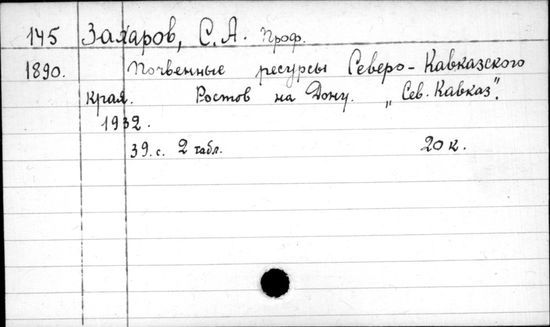 145 Захаров, С. А. Проф.
1890. Почвенные ресурсы Северо-Кавказского
края. Ростов на Дону. „Сев. Кавказ".
1932.
39. с. 2 табл. 20 к.